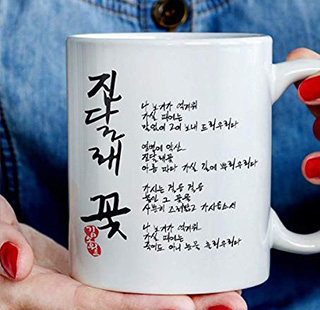 진달래 꽃
나 보기가 역겨워
가실 때에는
말없이 고이 보내 드리우리다
영변에 약산
진달래꽃
아름 따다 가실 길에 뿌리우리다
가시는 걸음 걸음
놓인 그 꽃을
사뿐히 즈려밟고 가시옵소서
나 보기가 역겨워
가실 때에는
죽어도 아니 눈물 흘리우리다
김소월